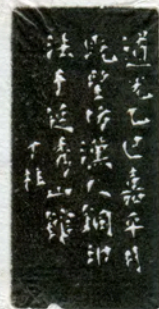 道光乙巳嘉平月
既望仿漢人銅印
法于延秀山館